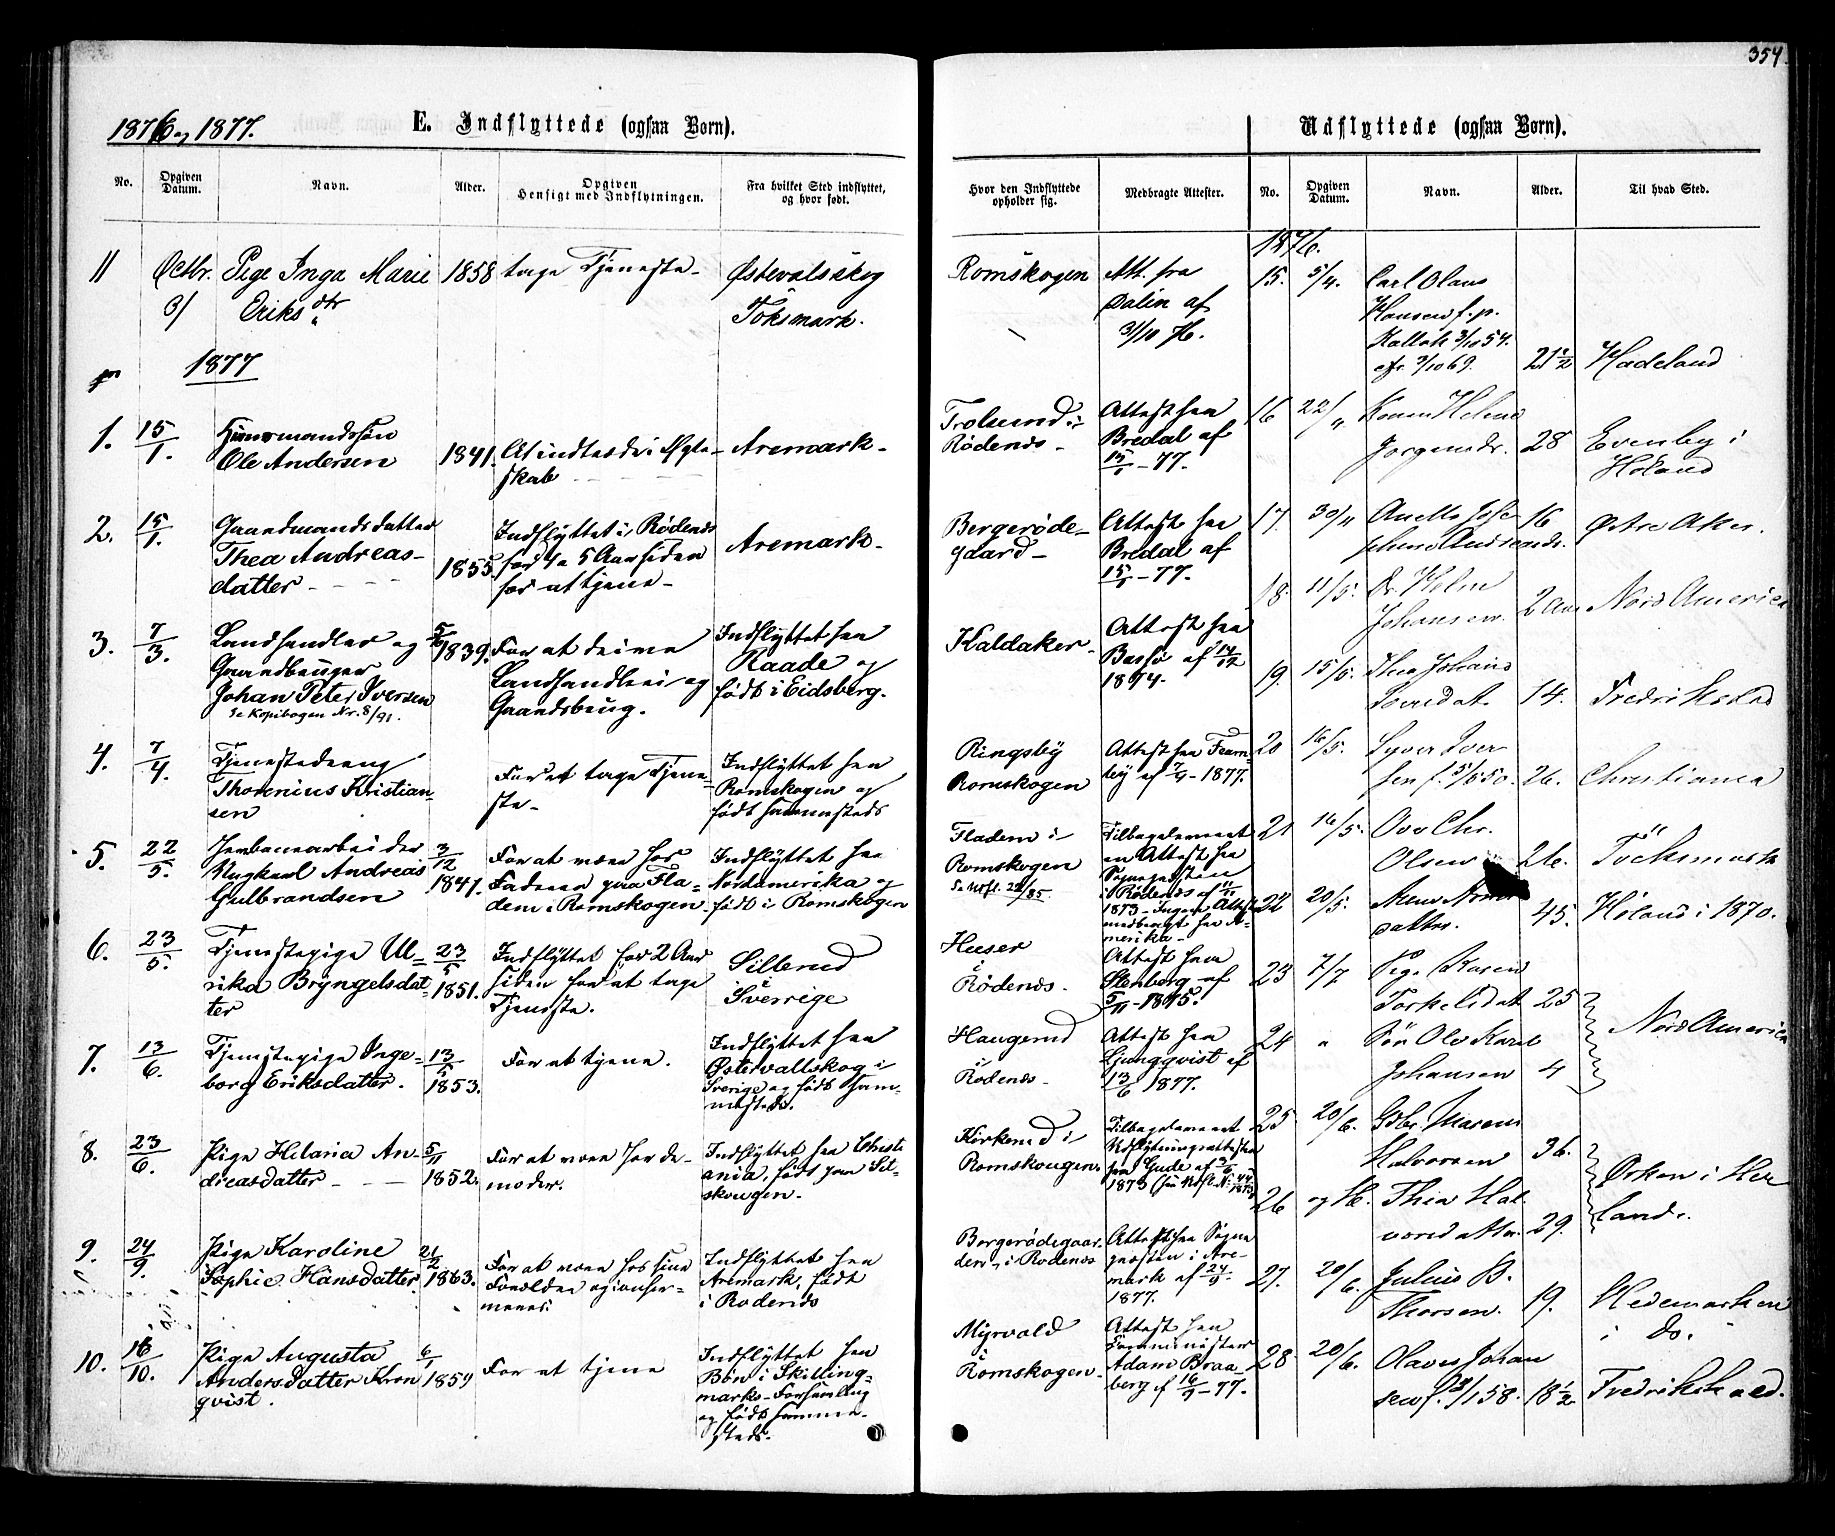 354.
1876 og 1877.
E. Indflyttede (ogsaa Born).
No.
Opgiven
Datum.
Navn.
Alder.
Opgiven
Hensigt med Indflytningen.
Fra hvilket Sted indflyttet,
og hvor født.
11
Octbr.
Pige Inga Marie
Eriksdtr
1858
tage Tjeneste
Østevalsskog
Töksmark.
1877
1.
15/1.
Ole Andersen
1841.
At indtræde i Ægte-
skab
Aremark.
2.
15/1.
Gaardmandsdatter
Thea Andreas-
datter
1855.
Indflyttet i Rødenes
for 4 a 5 Aar siden
for at tjene
Aremark.
3.
7/3.
Landhandler og
Gaardbruger
Johan Peter Iversen
Se Kopibogen Nr. 8/91.
1839.
For at drive
Landhandleri og
Gaardsbrug.
Indflyttet fra
Raade og
født i Eidsberg.
4.
7/4.
Tjenestedreng
Thorenius Kristian-
sen
For at tage Tjene-
ste
Indflyttet fra
Romskogen og
født sammesteds
5.
22/5.
Jernbanearbeider
Ungkarl Andreas
Gulbrandsen
3/12
1847.
For at være hos
Faderen paa Fla-
dem i Romskogen
Indflyttet fra
Nordamerika og
født i Romskogen
6.
23/5.
Tjenestepige Ul-
rika Bryngelsdat-
ter
23/5
1851.
Indflyttet for 2 Aar
siden for at tage
Tjeneste.
Sillerud
i Sverrige
7.
13/6.
Tjenstepige Inge-
borg Eriksdatter.
13/5
1853.
For at tjene.
Indflyttet fra
Østervallskog i
Sverige og født sam-
mesteds.
8.
23/6.
Pige Hilaria An-
dreasdatter
5/11
1852.
For at være hos de-
moder.
Indflyttet fra Christi
ania, født paa Sil-
skougen.
9.
24/9.
Pige Karoline
Sophie Hansdatter
21/2
1863.
For at være hos sine
Forældre og
Indflyttet fra
Aremark, født
i Rødenes
10.
16/10.
Pige Augusta
Andersdatter Kron
qvist.
6/1
1859
For at tjene
Indflyttet fra
Børn i Skilling-
marks Forsamling
og født samme-
steds.
Udflyttede (ogsaa Born).
Hvor den Indflyttede
opholder sig.
Medbragte Attester.
No.
Opgiven
Datum.
Navn.
Alder.
Til hvad Sted.
Romskogen
Att. fra
Dalin af
31/10 76.
Trolsund i
Rødenes
Attest fra
Bredal af
15/1 - 77.
Bergerøde-
gaard
Attest fra
Bredal af
15/1 - 77.
Kaldaker
Attest fra
Bassø af 14/12
1874.
Ringsby
Romskogen
Attest fra
by af 7/4 - 1877.
Fladem i
Romskogen
Tilbageleveret
en Attest fra
Sognepresten
i Rødenes af
1873 - Ingen Attest
medbragt fra A-
merika
Huser
i
Rødenes
Attest fra
Stenborg af
5/11 - 1875.
Haugerud
i
Rødenes
Attest fra
Ljungqvist af
13/6 1877.
Kirkerud i
Romskougen
Tilbageleveret
Udflytningsattesten
fra Gude af 3/6
1873
Bergerødegaar-
den i Rødenes
Attest fra Sogne
presten i Are-
mark af 24/9
1877.
Myrvold
i
Romskogen
Attest fra
Komminister
Adam Braa
berg af 16/9 - 77.
1876.
15.
5/4.
Carl Olaus
Hansen f. p.
Kallak 3/10 54.
21 1/2
Hadeland
16
22/4
Karen Helene
Jørgensdr.
28
Evenby i
Høland
17.
30/4
Anette Jose
phine Andreasdr.
16
Østre Aker.
18.
11/5.
Johansen.
2 Aar
Nord America
19.
15/5.
Thea Johans
14.
Fredrikstad
20
16/5.
Syver Iver
sen f. 5/5 50.
26.
Christiania
21
16/5.
Ove Chr.
Olsen
26.
Töcksmark
22
20/5.
datter.
45.
Høland i 1870.
23
7/7
Pige Karen
Torkelsdat
25
Nord America
24
"
Søn Ole Karl
Johansen
4
25
20/6.
Gdbr. Maren
Halvorsen
36.
Ørken i Hø
land.
26
og H.
Thea Hal
vorsdatter
29.
27.
20/6.
Julius B.
Thorsen.
19.
Hedemarken
i do.
28
20/6.
Olaves Johan
sen f. 29/1 58.
18 1/2
Fredrikshald.